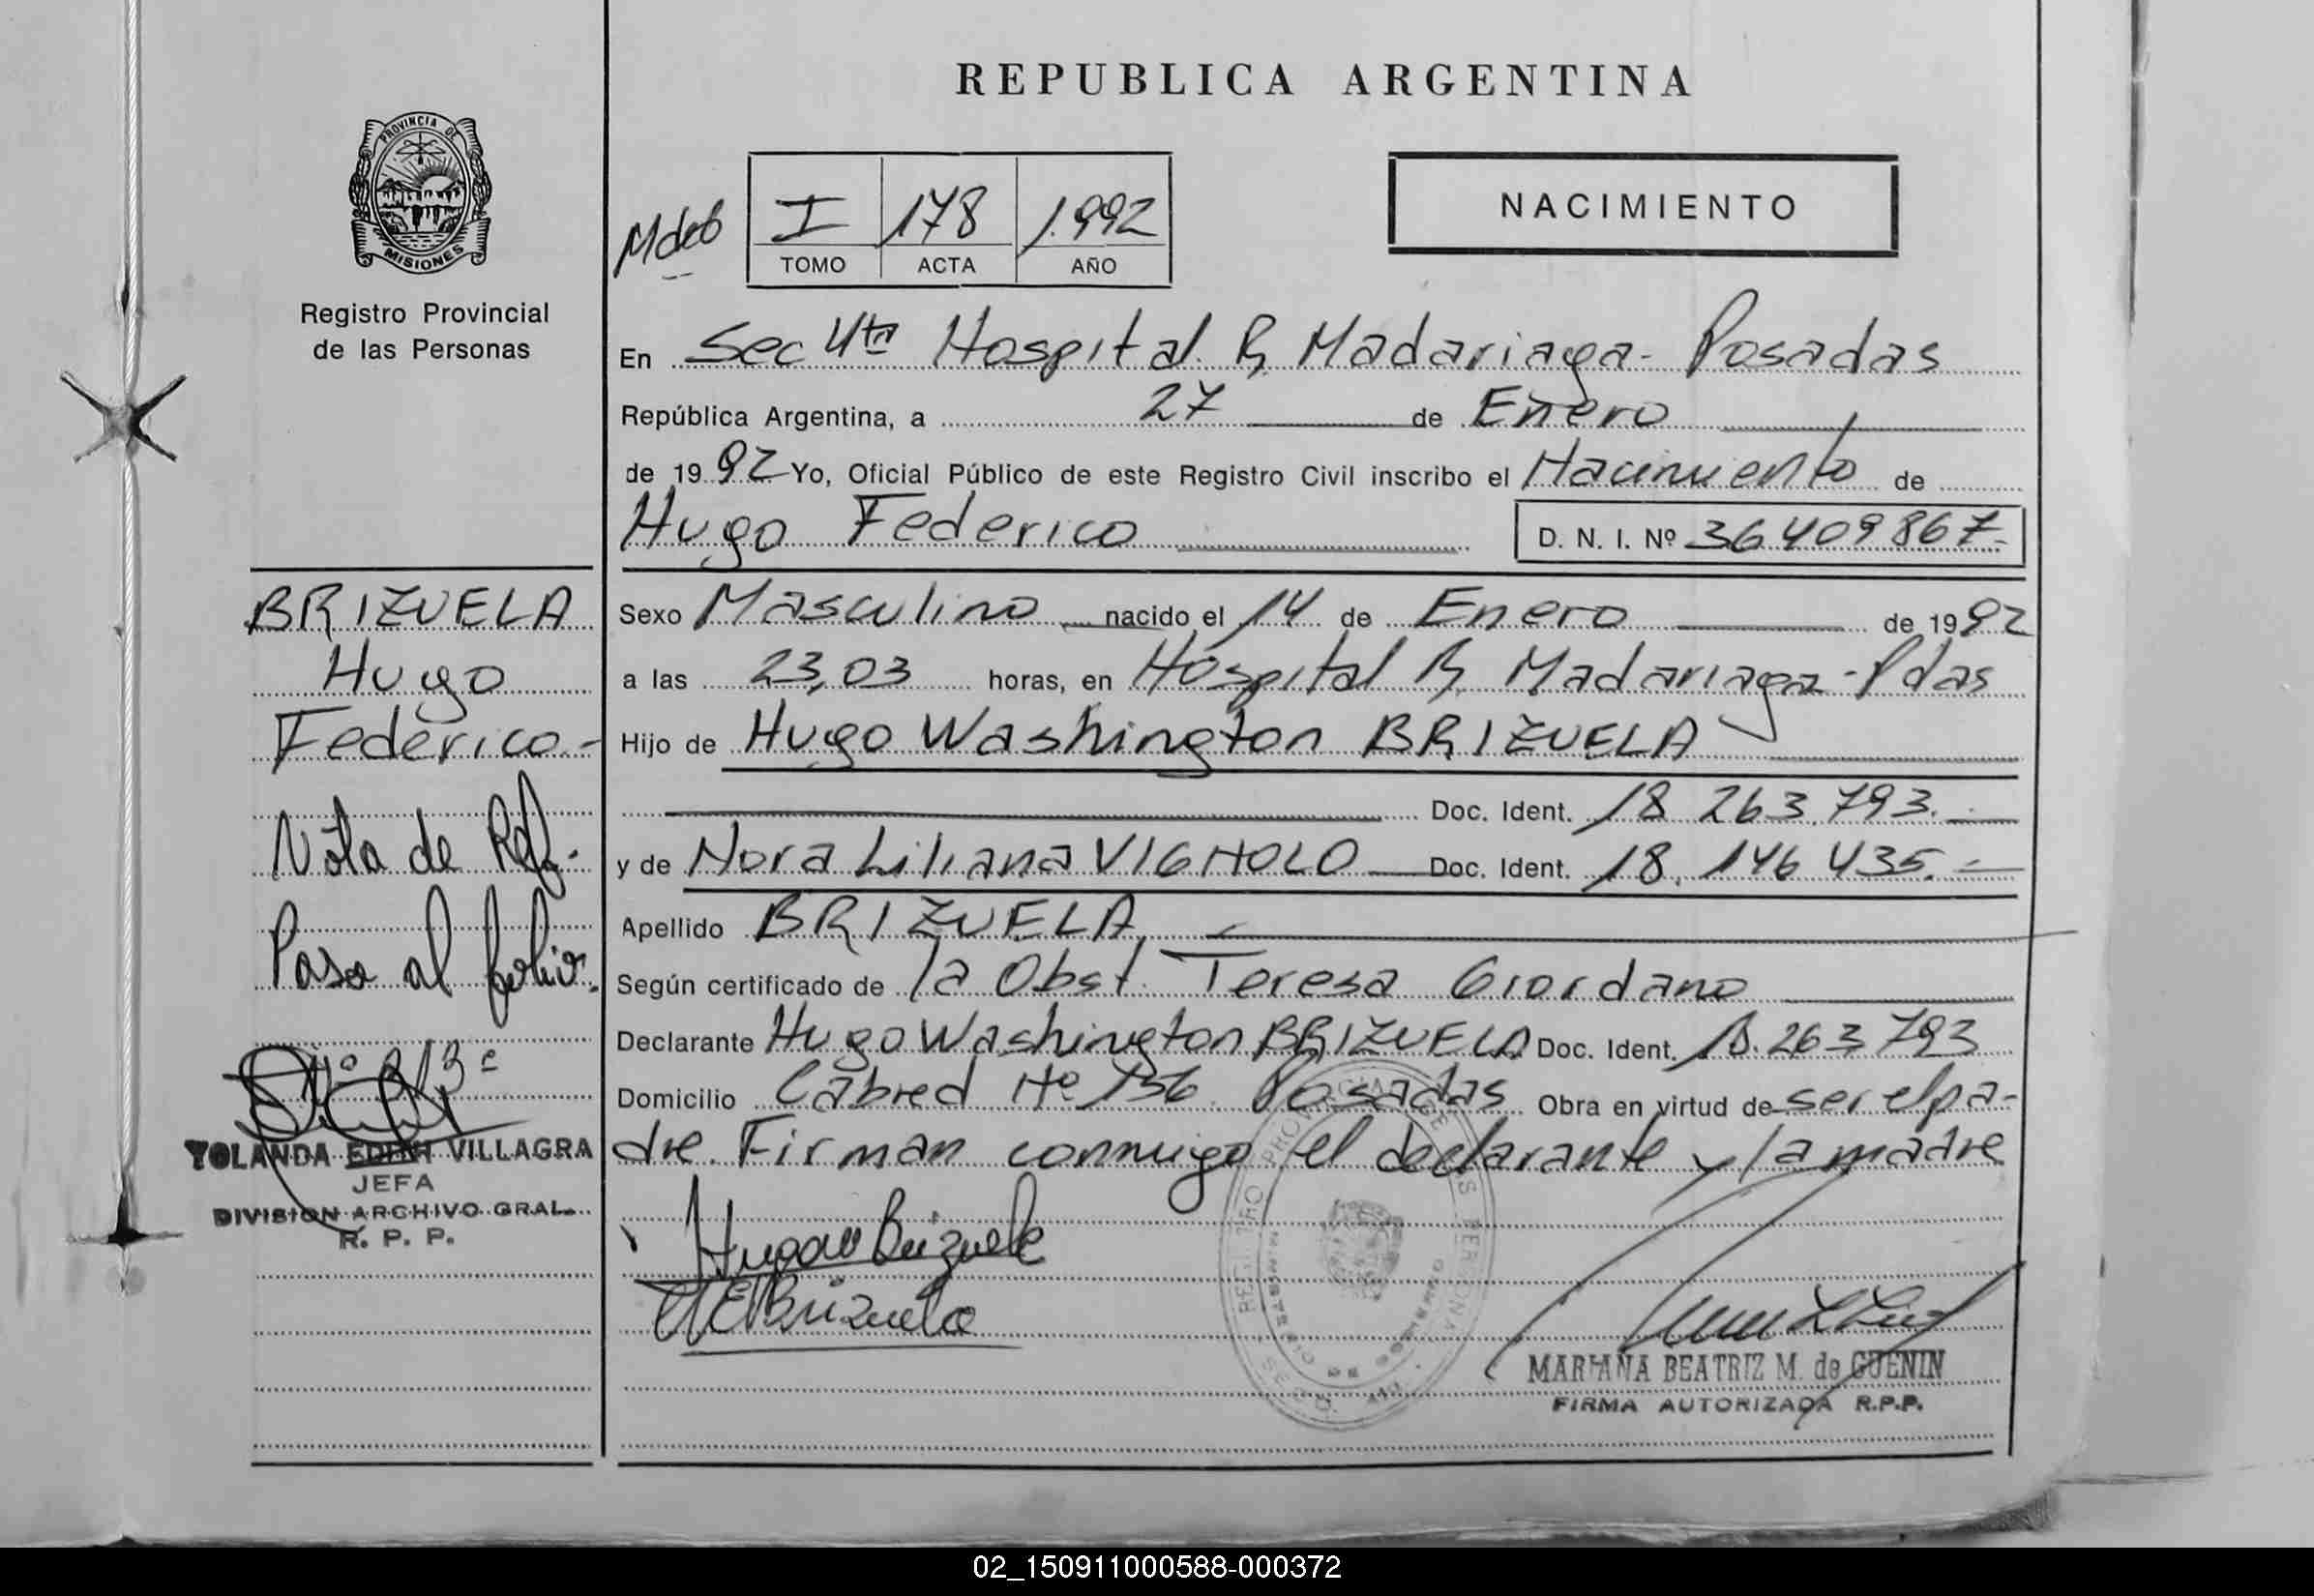 REPUBLICA ARGENTINA
PROVINCIA DE
MISIONES
Registro Provincial
de las Personas
I 178 1.992
TOMO ACTA AÑO
NACIMIENTO
En Sec 4ta Hospital R. Madariaga - Posadas
República Argentina, a 27 de Enero
de 1992 Yo, Oficial Público de este Registro Civil inscribo el Nacimiento de
Hugo Federico D. N. I. Nº 36.409.867.-
BRIZUELA
Hugo
Federico.-
Nota de Ref.
Pasa al folio.
Nº 213
YOLANDA EDITH VILLAGRA
JEFA
DIVISION ARCHIVO GRAL.
R. P. P.
Sexo Masculino nacido el 14 de Enero de 1992
a las 23,03 horas, en Hospital R. Madariaga - Pdas
Hijo de Hugo Washington BRIZUELA
Doc. Ident. 18.263.793.-
y de Nora Liliana VIGNOLO Doc. Ident. 18.146.435.-
Apellido BRIZUELA
Según certificado de la Obst. Teresa Giordano
Declarante Hugo Washington BRIZUELA Doc. Ident. 18.263.793
Domicilio Cabred Nº 156 Posadas Obra en virtud de ser el pa-
dre. Firman conmigo el declarante y la madre
Brizuela
Brizuela
MARIANA BEATRIZ M. de GUENIN
FIRMA AUTORIZADA R.P.P.
02_150911000588-000372